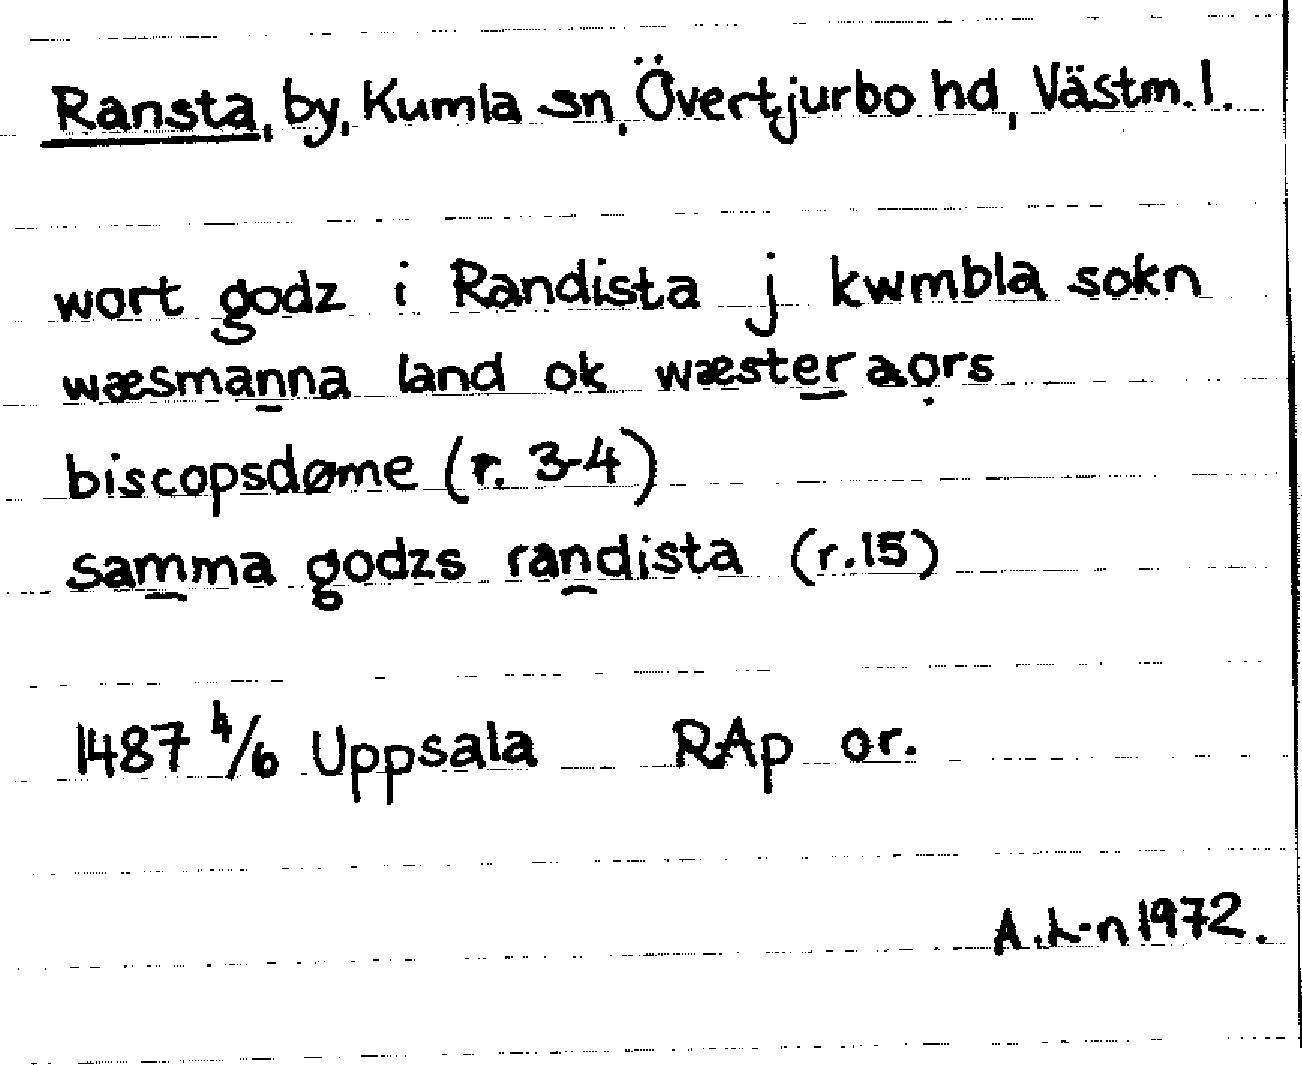 Ransta, by, Kumla sn, Övertjurbo hd, Västm. l.
wort godz i Randista j kwmbla sokn
wæsmanna land ok wæster aors
biscopsdøme (r. 3-4)
samma godzs randista (r.15)
1487 4/6 Uppsala RAp or.
A.L-n 1972.